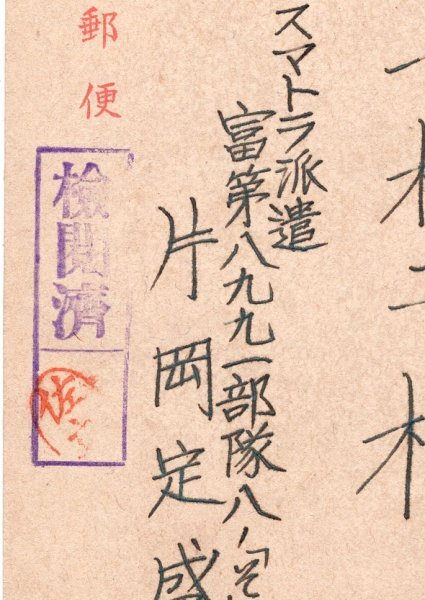 スマトラ派遣
富第八九九一部隊八ノ
片岡定盛
郵便
検閲済
佐